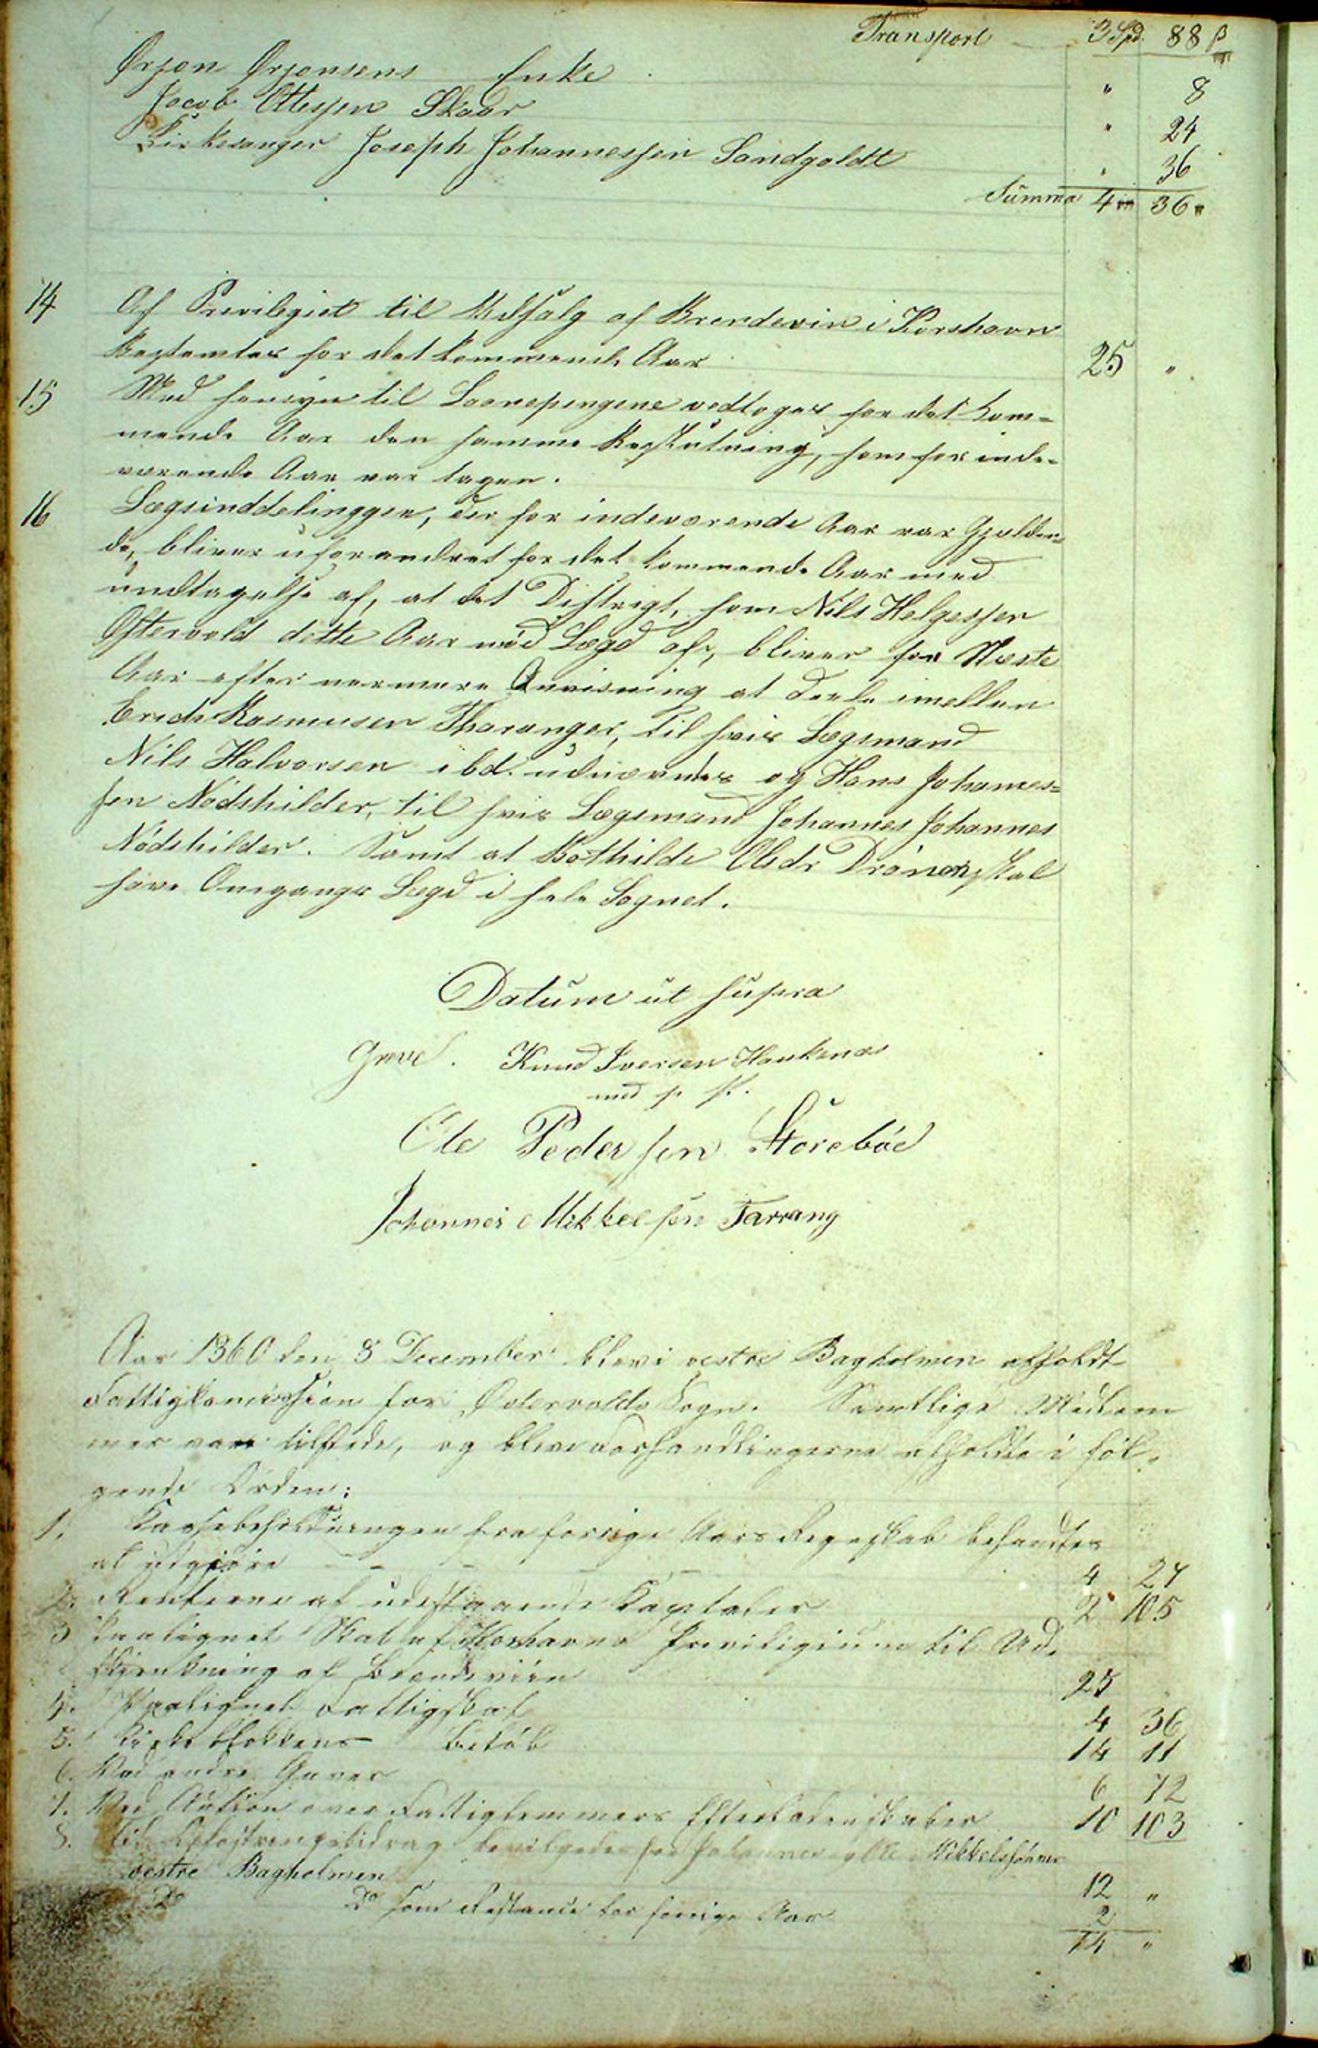 Transport 3 Spd. 88 ß
Ørjan Ørjansens Enke " 8
Jacob Ottesen Skaar " 24
Kirkesanger Joseph Johannessen Sandgoldt " 36
Summa 4 " 36 "
14 Af Privilegiet til Udsalg af Brendevin i Korshavn
bestemtes for det kommende Aar 25 "
15 Med hensyn til Loonspengene vedtoges for det kom-
mende Aar den samme Beslutning, som for inde-
værende Aar var tagen.
16 Lægsinddelinggen, der for indeværende Aar var Gjelden-
de, bliver uforandret for det kommende Aar med
undtagelse af, at det Distrigt, som Nils Helgessen
Østervold dette Aar nød Lægd af, bliver for Næste
Aar efter nærmere Anvisning at deele imellem
Erick Rasmusen Tharanger, til hvis Lægsmand
Nils Halvorsen ibd. udnævnes og Hans Johannes-
sen Nødskilder, til hvis Lægsmand Johannes Johannes
Nødskilder. Samt at Bothilde Olsdr Drønen skal
have Omgangs Lægd i hele Sognet.
Datum ut supra
Greve. Knud Iversen Haukenæs
med p. P.
Ole Pedersen Storebøe
Johannes Mikkelsen Tarrang
Aar 1860 den 8 December blev i vestre Bagholmen afholdt
Fattigkomission for Østervolds Sogn. Samtlige Medlem
mer var tilstede, og bleve Forhandlingerne afholdte i føl-
gende Orden:
1. Kassebeholdningen fra forrige Aars Regnskab befandtes
at udgjøre 4 24
2. Renterne af udestaaende Kapitaler 2 105
3 Paalignet Skat af Korshavns Privilegium til Ud-
skjenkning af Brændeviin 25
4. Paalignet Fattigskat 4 36
5. Kirkeblokkens Beløb 14 11
6. Ved andre Gaver 6 72
7. Ved Auktion over Fattiglemmers Efterladenskaber 10 103
8. Til Opfostringsbidrag bevilgedes for Johannes Mikkelsønnes
vestre Bagholmen 12 "
Do Do som Restance for forrige Aar 2
14 "